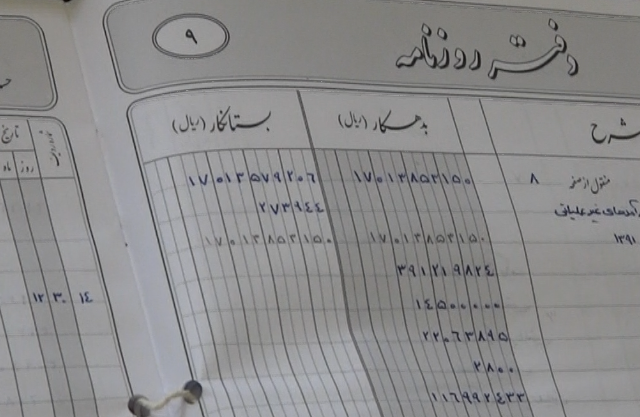 ۹
دفتر روزنامه
شرح بدهکار (ریال) بستانکار (ریال)
منقول از صفحه ۸ ۱۷۰۱۳۸۵۳۱۵۰ ۱۷۰۱۳۵۷۹۲۰۶
رآمدهای غیر عملیاتی ۲۷۳۹۴۴
۱۳۹۱ ۱۷۰۱۳۸۵۳۱۵۰ ۱۷۰۱۳۸۵۳۱۵۰
۳۹۱۲۱۹۸۲۴
۱۴۵۰۰۰۰۰
۲۲۰۶۳۸۹۵
۲۸۰۰
۱۱۶۹۹۲۴۳۳
تاریخ
روز ماه
۱۴ ۳۰ ۱۲